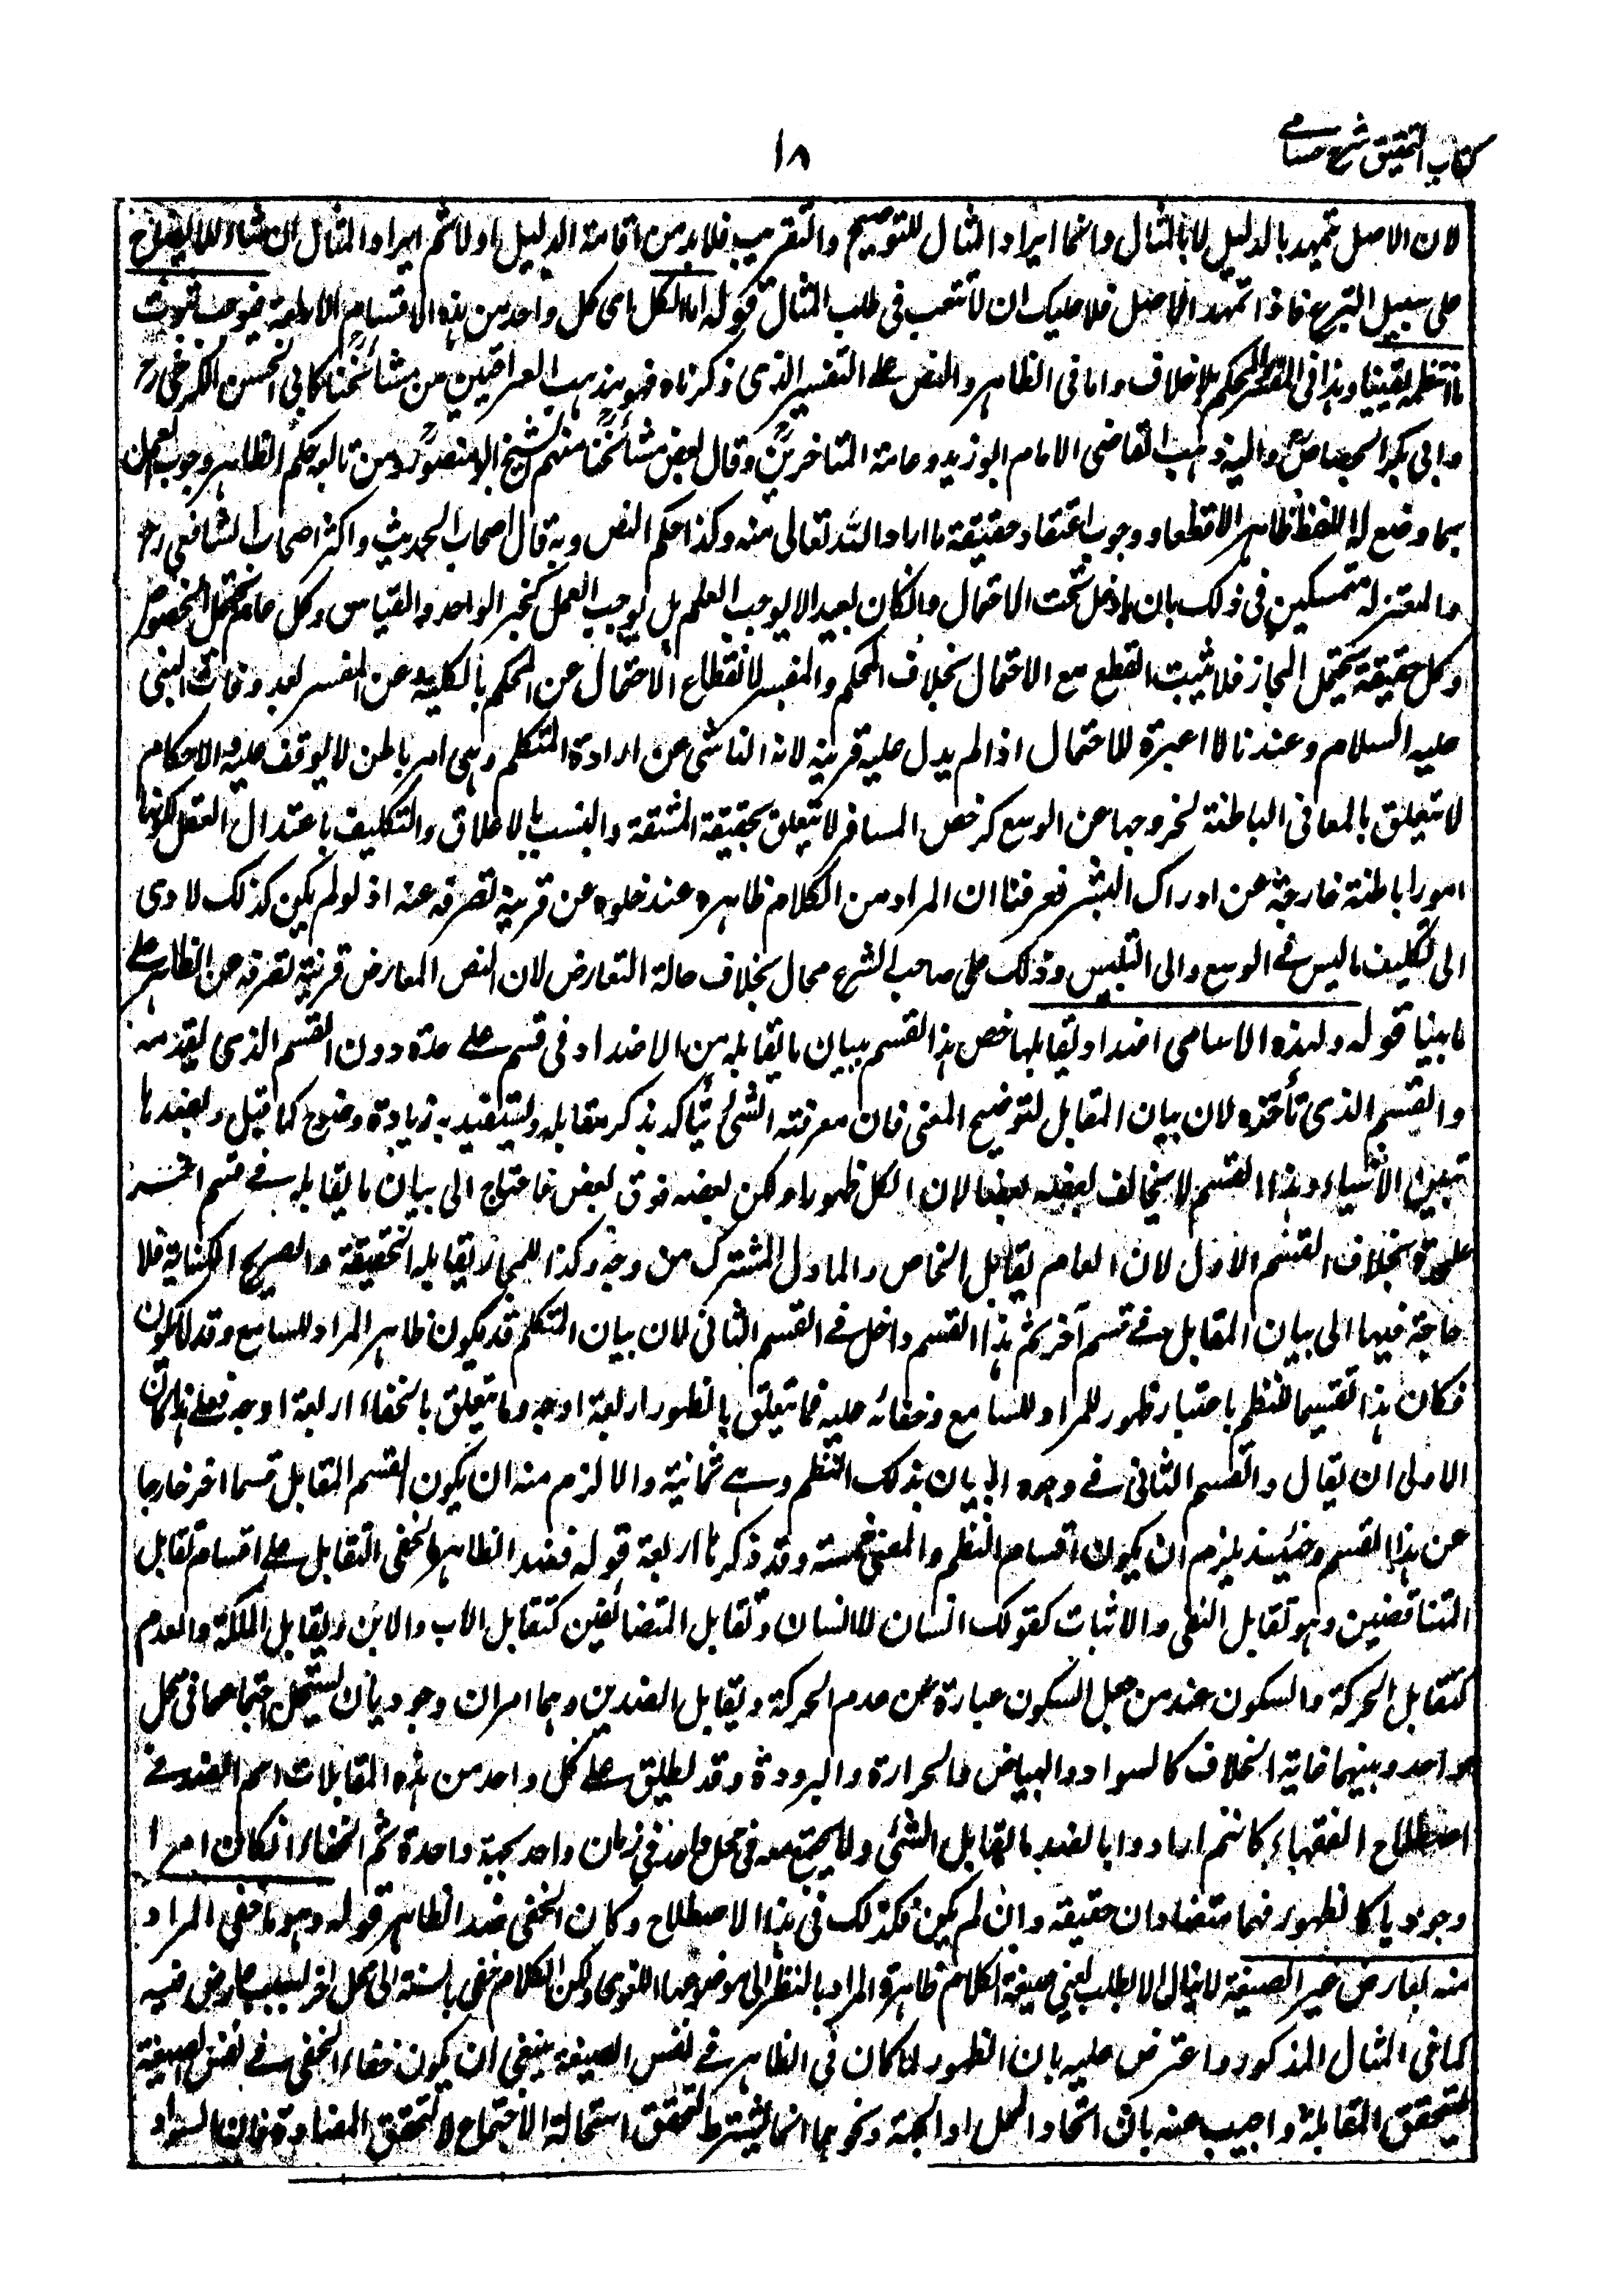 كتاب التحقيق شرح حسامي
١٨
لان الاصل تمهيد بالدليل لا بالمثال وانما ايراد المثال للتوضيح والتقريب فلابد من اقامة الدليل اولا ثم ايراد المثال ان شاء للايضاح
على سبيل التبرع فاذا تمهد الاصل فلا عليك ان لا تتعب فى طلب المثال قوله اما الكل اى كل واحد من هذه الاقسام الاربعة فيوجب ثبوت
ما انتظمه يقينا وهذا فى المفسر والمحكم بلا خلاف واما فى الظاهر والنص على التفسير الذى ذكرناه فهو مذهب العراقيين من مشائخنا كابى الحسن الكرخى رح
وابى بكر الجصاص واليه ذهب القاضى الامام ابو زيد وعامة المتاخرين وقال بعض مشائخنا منهم الشيخ ابو منصور ومن تابعه حكم الظاهر وجوب العمل
بما وضع له اللفظ ظاهرا لا قطعا ووجوب اعتقاد حقيقة ما اراد الله تعالى منه وكذا حكم النص وبه قال اصحاب الحديث واكثر اصحاب الشافعى رح
والمعتزلة متمسكين فى ذلك بان ما دخل تحت الاحتمال وان كان بعيدا لا يوجب العلم بل يوجب العمل كخبر الواحد والقياس وكل عام يحتمل الخصوص
وكل حقيقة يحتمل المجاز فلا يثبت القطع مع الاحتمال بخلاف المحكم والمفسر لانقطاع الاحتمال عن المحكم بالكلية وعن المفسر بعد وفات النبى
عليه السلام وعندنا لا عبرة للاحتمال اذا لم يدل عليه قرينة لانه الناشى عن ارادة المتكلم وهى امر باطن لا يوقف عليه والاحكام
لا تتعلق بالمعانى الباطنة لخروجها عن الوسع كرخص المسافر لا تتعلق بحقيقة المشقة والنسب بالاعلاق والتكليف باعتدال العقل لكونها
امورا باطنة خارجة عن ادراك البشر فعرفنا ان المراد من الكلام ظاهره عند خلوه عن قرينة تصرفه عنه اذ لو لم يكن كذلك لادى
الى تكليف ما ليس فى الوسع والى التلبيس وذلك على صاحب الشرع محال بخلاف حالة التعارض لان النص المعارض قرينة تصرفه عن الظاهر على
ما بينا قوله ولهذه الاسامى اضداد تقابلها خص هذا القسم ببيان ما يقابله من الاضداد فى قسم على حدة دون القسم الذى تقدمه
والقسم الذى تأخره لان بيان المقابل لتوضيح المعنى فان معرفة الشئ يتأكد بذكر مقابله ويستفيد به زيادة وضوح كما قيل وبضدها
تتبين الاشياء وهذا القسم لا يخالف بعضه بعضا لان الكل ظهورا ولكن بعضه فوق بعض فاحتاج الى بيان ما يقابله فى قسم اخر
على حدة بخلاف القسم الاول لان العام يقابل الخاص والماول المشترك من وجه وكذا المجاز يقابله الحقيقة والصريح الكناية فلا
حاجة فيها الى بيان المقابل فى قسم آخر ثم هذا القسم داخل فى القسم الثانى لان بيان المتكلم قد يكون ظاهر المراد للسامع وقد لا يكون
فكان هذا تقسيما للنظم باعتبار ظهور المراد للسامع وخفائه عليه فما يتعلق بالظهور اربعة اوجه وما يتعلق بالخفاء اربعة اوجه فعلى هذا كان
الاولى ان يقال والقسم الثانى فى وجوه البيان بذلك النظم وهى ثمانية والا لزم منه ان يكون القسم المقابل قسما اخر خارجا
عن هذا القسم وحينئذ يلزم ان يكون اقسام النظم والمعنى خمسة وقد ذكرنا اربعة قوله فضد الظاهر الخفى التقابل على اقسام تقابل
المتناقضين وهو تقابل النفى والاثبات كقولك انسان لا انسان وتقابل المتضائفين كتقابل الاب والابن وتقابل الملكة والعدم
كتقابل الحركة والسكون عند من جعل السكون عبارة عن عدم الحركة وتقابل الضدين وهما امران وجوديان يستحيل اجتماعهما فى محل
واحد وبينهما غاية الخلاف كالسواد والبياض والحرارة والبرودة وقد يطلق على كل واحد من هذه المقابلات اسم الضد فى
اصطلاح الفقهاء كانهم ارادوا بالضد ما يقابل الشئ ولا يجتمع معه فى محل واحد فى زمان واحد بجهة واحدة ثم الخفاء ان كان امرا
وجوديا كالظهور فهما متضادان حقيقة وان لم يكن فكذلك فى هذا الاصطلاح وكان الخفى ضد الظاهر قوله وهو ما خفى المراد
منه بعارض غير الصيغة لا ينال الا بطلب يعنى صيغة الكلام ظاهرة المراد بالنظر الى موضوعها اللغوى ولكن الكلام خفى بالنسبة الى محل اخر بسبب عارض فيه
كما فى المثال المذكور واعترض عليه بان الظهور لما كان فى الظاهر فى نفس الصيغة ينبغى ان يكون خفاء الخفى فى نفس الصيغة
ليتحقق المقابلة واجيب عنه بان اتحاد المحل او الجهة ونحوهما انما يشترط لتحقق استحالة الاجتماع لا لتحقق المضادة فان السواد